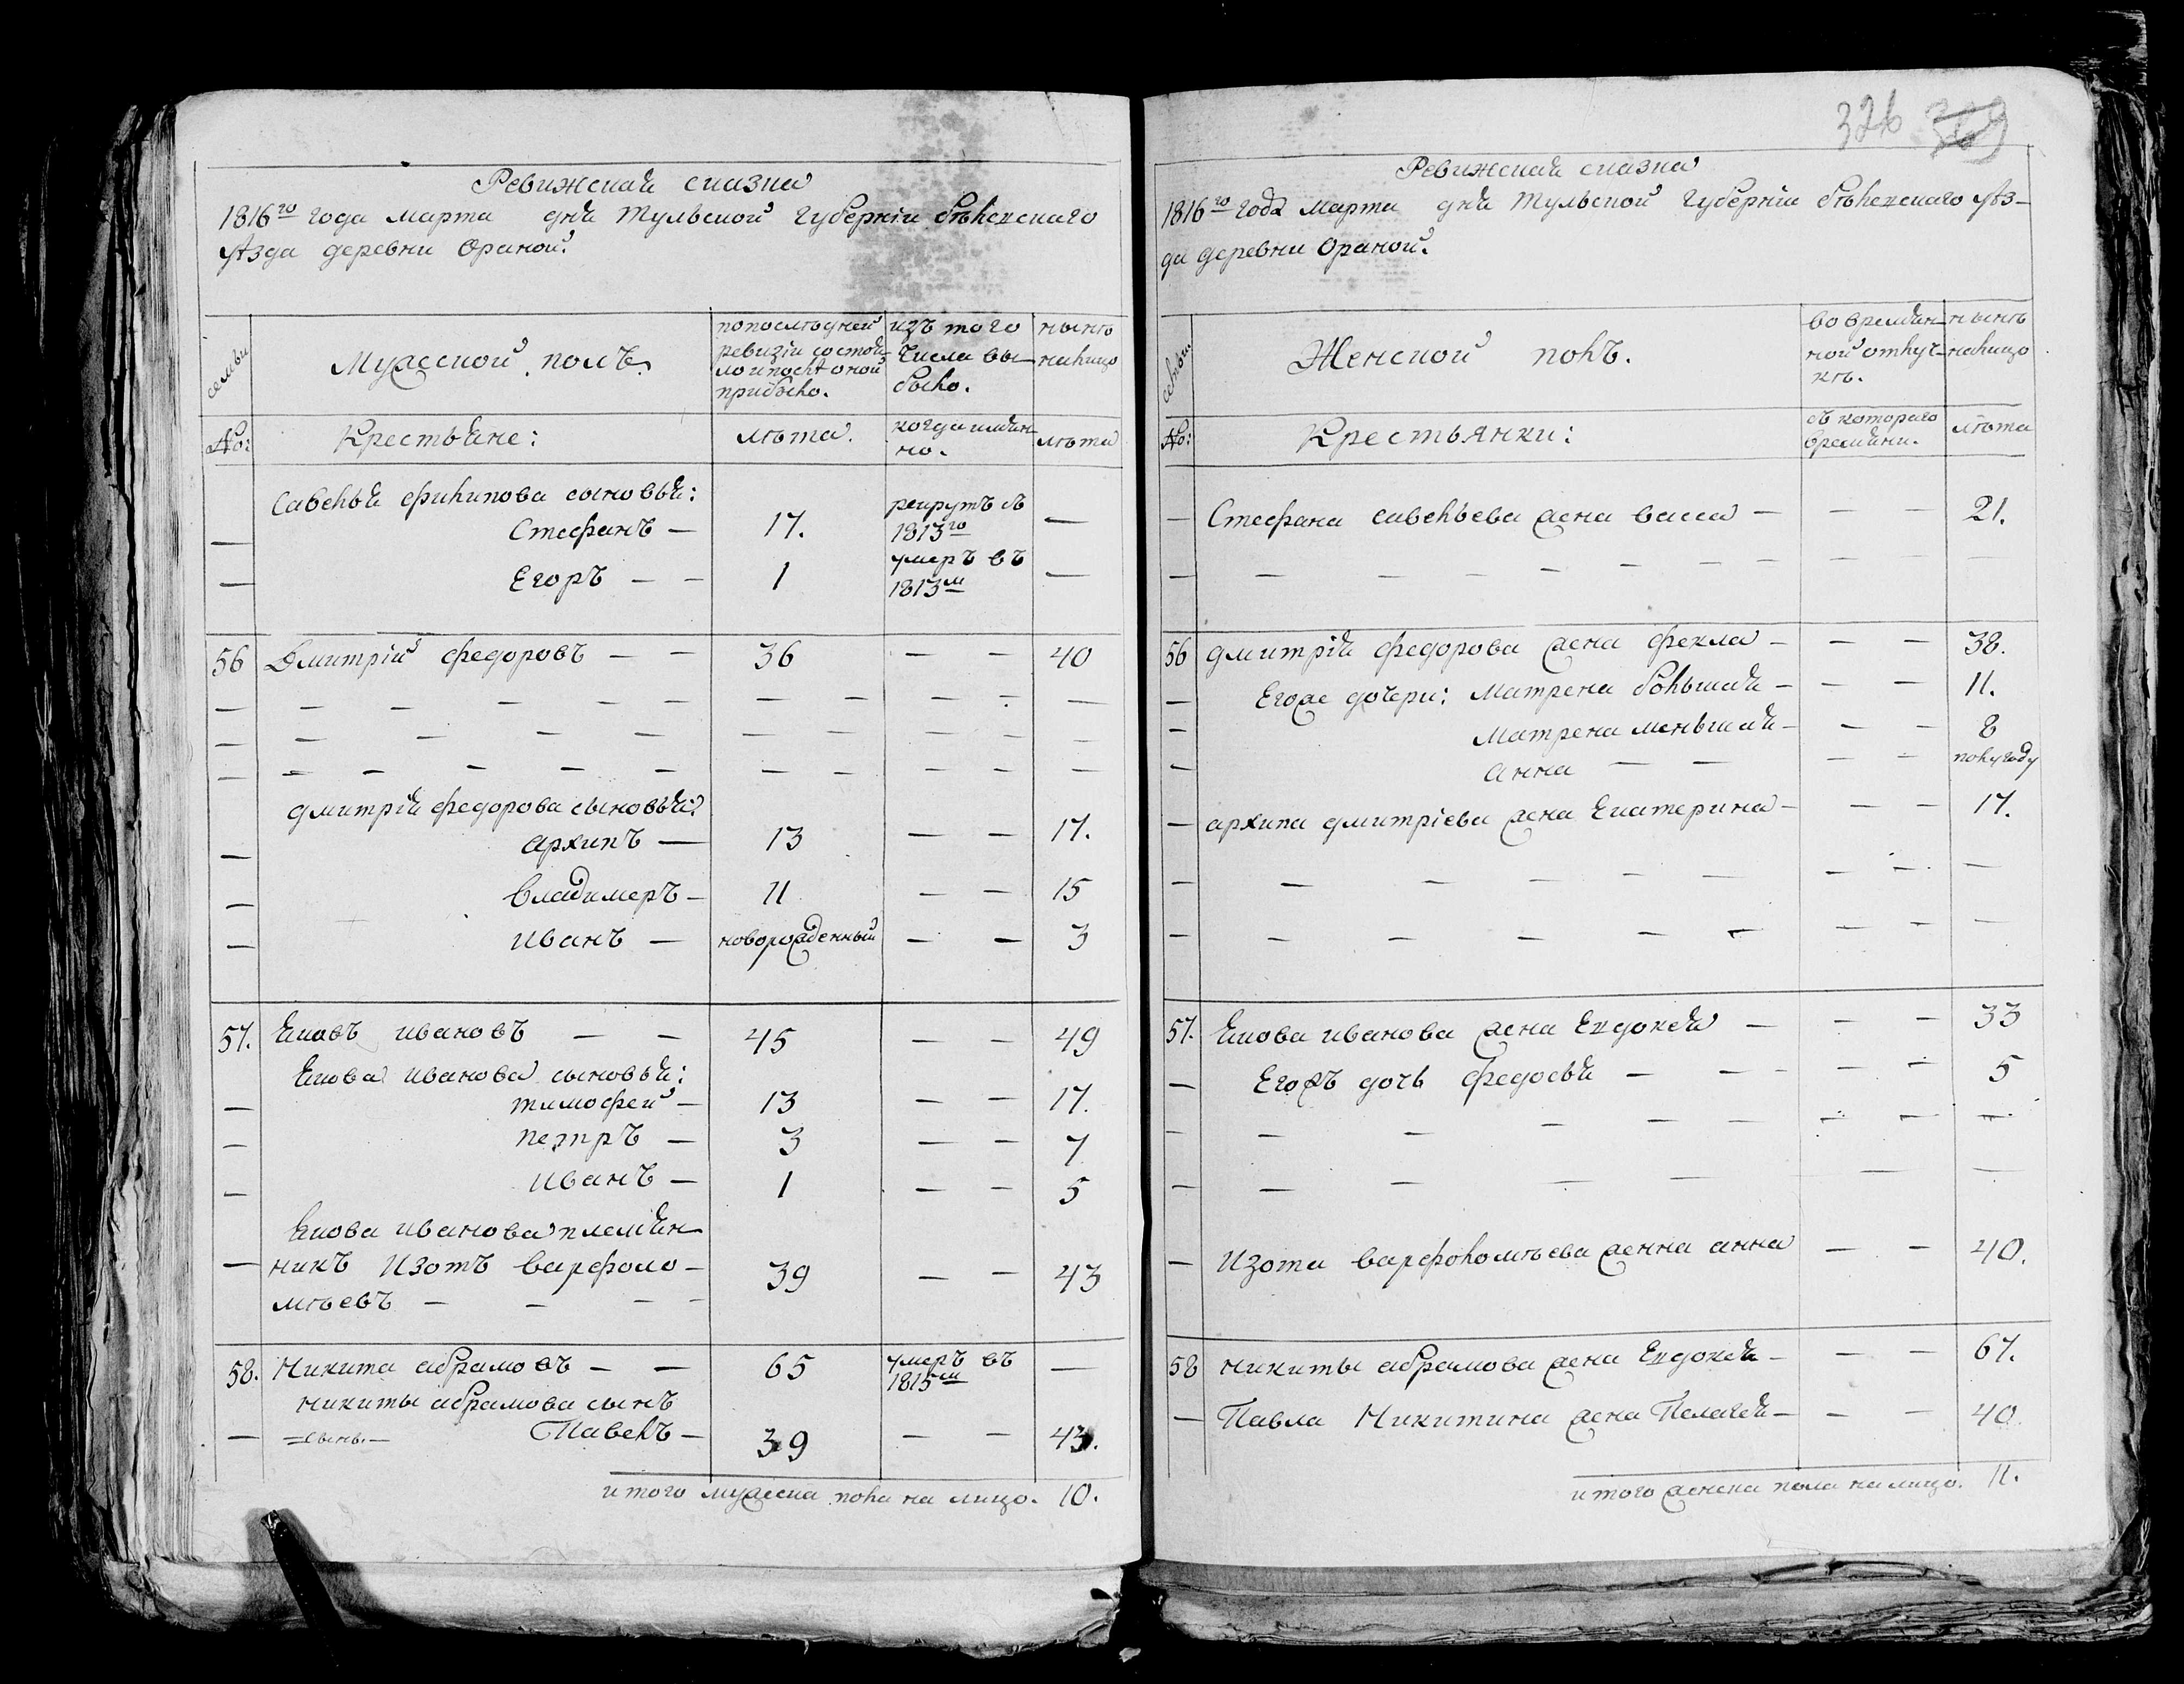 326 369
Ревижская сказка
1816го года марта дня Тульской губерніи бѣлевскаго
уѣзда деревни Ораной.
семьи
Мужеской полъ.
по последней
ревизіи состоя-
ло и послѣ оной
прибыло.
изъ того
числа вы-
было.
нынѣ
налицо
No:
Крестьяне:
лѣта.
когда имян-
но.
лѣта
Савелья филипова сыновья:
— Стефанъ — 17. рекрутъ съ 1813го —
— Егоръ — — 1 умеръ въ 1813м —
56 Дмитрій федоровъ — — 36 — — 40
дмитрія федорова сыновья:
— архипъ — 13 — — 17.
— владимеръ — 11 — — 15
— иванъ — новорожденный — — 3
57. яковъ ивановъ — — 45 — — 49
якова иванова сыновья:
— тимофей — 13 — — 17.
— петръ — 3 — — 7
— иванъ — 1 — — 5
якова иванова племян-
— никъ Изотъ варфоло- 39 — — 43
мѣевъ — — — —
58. Никита абрамовъ — — 65 умеръ въ 1815м —
никиты абрамова сынъ
— сынъ — Павелъ — 39 — — 43.
итого мужеска пола на лицо. 10.
Ревижская сказка
1816го года марта дня Тульской губерніи бѣлевскаго уѣз-
да деревни Ораной.
семьи
Женской полъ.
во времян-
ной отлуч-
кѣ.
нынѣ
налицо
No:
Крестьянки:
съ котораго
времяни.
лѣта
— Стефана савельева жена васса — — — 21.
56 дмитрія федорова жена фекла — — — 38.
— Егоже дочери: Матрена большая — — — 11.
— Матрена меньшая — — — 8
— анна — — — — полугоду
— архипа дмитріева жена Екатерина — — — 17.
57. якова иванова жена Евдокея — — — 33
— Егожъ дочь федосья — — — — — 5
— Изота варфоломѣева женна анна — — 40.
58 никиты абрамова жена Евдокея — — — 67.
— Павла Никитина жена Пелагея — — — 40
итого женска пола налицо. 11.